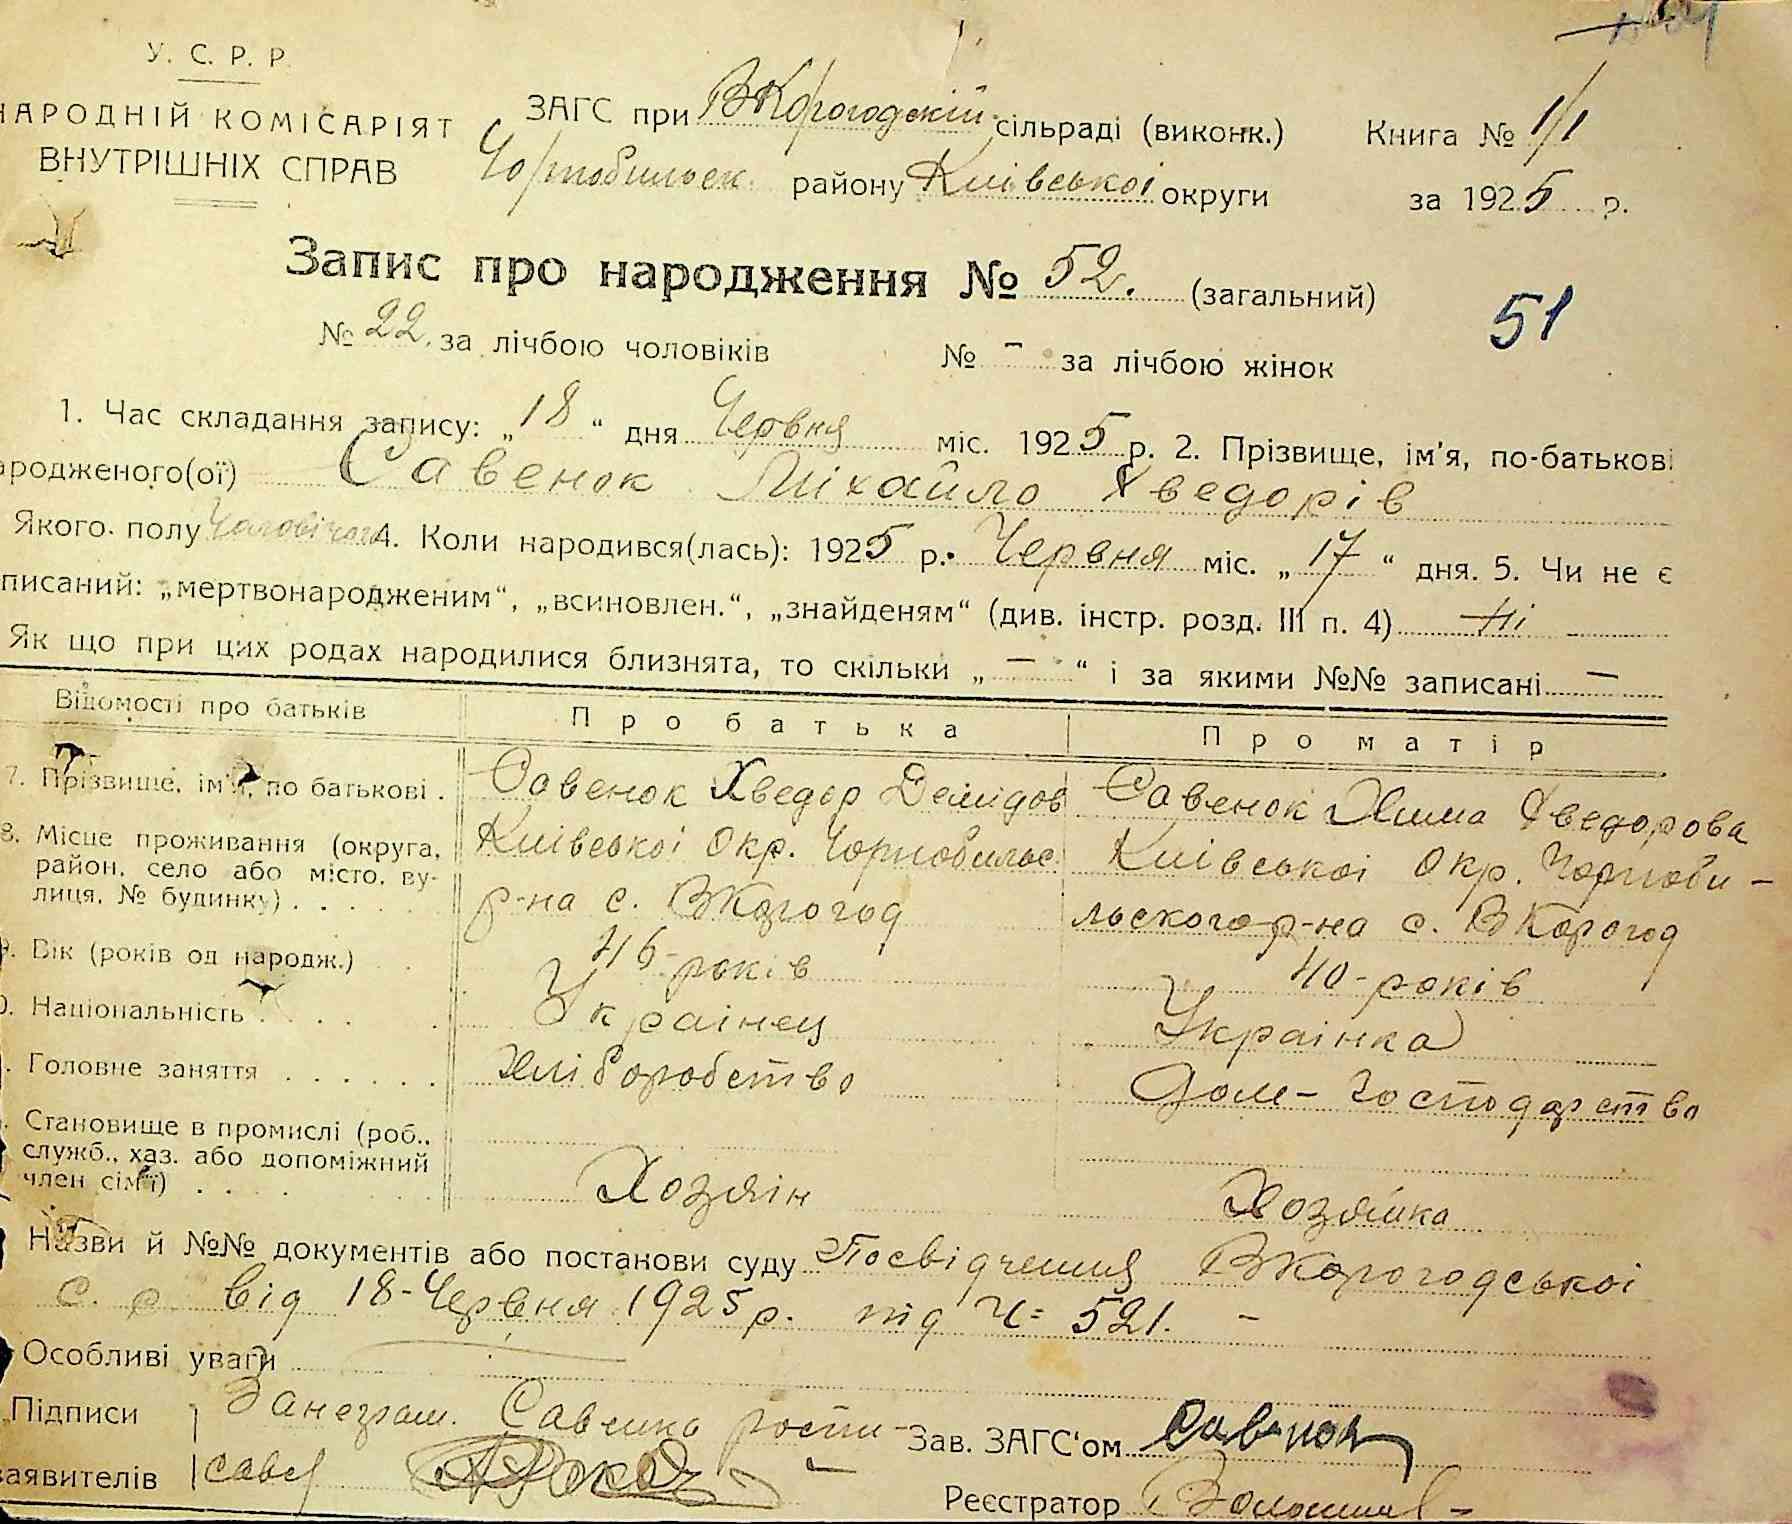 У. С. Р. Р.
НАРОДНІЙ КОМІСАРІЯТ
ВНУТРІШНІХ СПРАВ
ЗАГС при ВКорогодскій сільраді (виконк.) Книга № 1/1
Чорнобильск. району Київської округи за 1925 р.
Запис про народження № 52. (загальний)
51
№ 22. за лічбою чоловіків № – за лічбою жінок
1. Час складання запису: „18“ дня Червня міс. 1925 р. 2. Прізвище, ім'я, по-батькові
ародженого(ої) Савенок Міхайло Хведорів
Якого полу Чоловічого 4. Коли народився(лась): 1925 р. Червня міс. „17“ дня. 5. Чи не є
писаний: „мертвонародженим“, „всиновлен.“, „знайденям“ (див. інстр. розд. III п. 4) Ні
Як що при цих родах народилися близнята, то скільки „—“ і за якими №№ записані —
Відомості про батьків Про батька Про матір
7. Прізвище, ім'я, по батькові . Савенок Хведор Демідов Савенок Хима Хведорова
8. Місце проживання (округа, район, село або місто, вулиця, № будинку) . . . . Київської Окр. Чорнобильс. р-на с. ВКорогод Київської Окр. Чорнобильского р-на с. ВКорогод
9. Вік (років од народж.) . . 46-років 40-років
0. Національність . . . . Українец Українка
. Головне заняття . . . . . . Хліборобство Дом-Господарство
. Становище в промислі (роб., служб., хаз. або допоміжний член сім'ї) . . . Хозяін Хозяйка
Назви й №№ документів або постанови суду Посвідчення ВКорогодської
с. р. від 18-Червня 1925 р. під Ч= 521. –
Особливі уваги
Підписи За неграм. Савенка роспи-
заявителів сався
Зав. ЗАГС'ом Савенок
Реєстратор